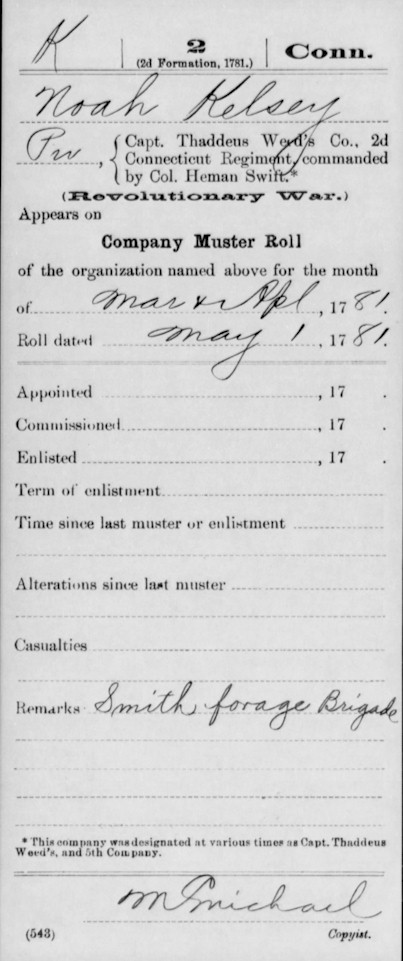 K
2
(2d Formation, 1781.)
Conn.
Noah Kelsey
Pvt, { Capt. Thaddeus Weed's Co., 2d
Connecticut Regiment, commanded
by Col. Heman Swift.*
(Revolutionary War.)
Appears on
Company Muster Roll
of the organization named above for the month
of Mar & Apl, 1781.
Roll dated May 1, 1781.
Appointed , 17 .
Commissioned , 17 .
Enlisted , 17 .
Term of enlistment
Time since last muster or enlistment
Alterations since last muster
Casualties
Remarks Smith, forage Brigade
* This company was designated at various times as Capt. Thaddeus
Weed's, and 5th Company.
McMichael
(543) Copyist.